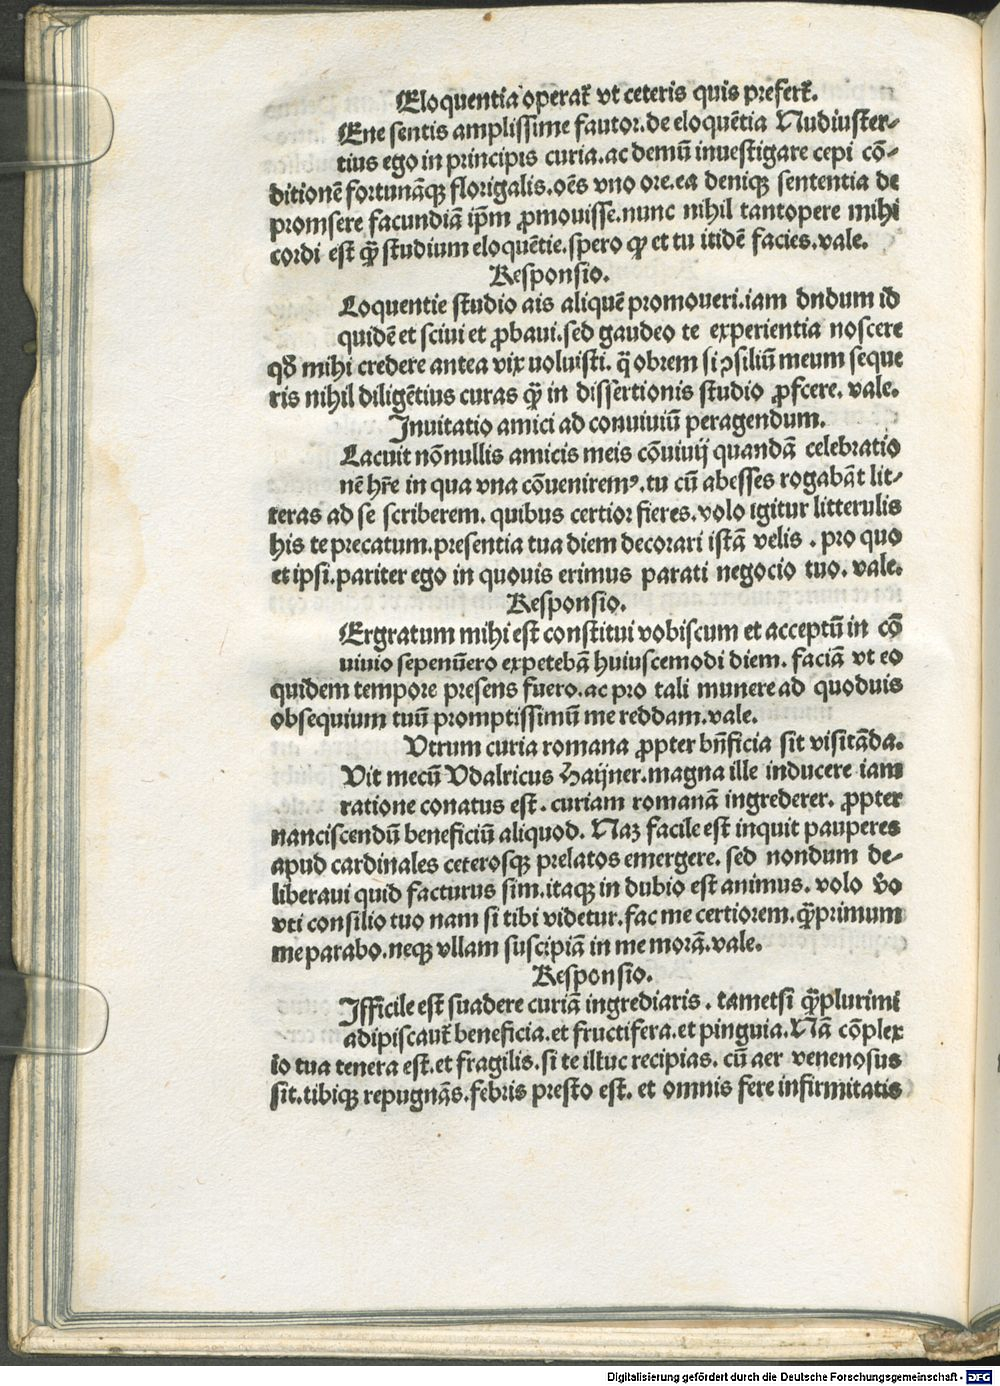 Eloquentia operat᷑ vt ceteris quis prefert᷑.
Ene sentis amplissime fautor.de eloquẽtia Nudiuster-
tius ego in principis curia.ac demũ inuestigare cepi cõ-
ditionẽ fortunãqꝫ florigalis.oẽs vno ore.ea deniqꝫ sententia de
promsere facundiã ip̃m ꝓmouisse.nunc nihil tantopere mihi
cordi est q̃ꝫ studium eloquẽtie.spero ꝙ et tu itidẽ facies.vale.
Responsio.
Loquentie studio ais aliquẽ promoueri.iam dndum id
quidẽ et sciui et ꝓbaui.sed gaudeo te experientia noscere
qđ mihi credere antea vix uoluisti. q̃ obrem si ꝯsiliũ meum seque
ris nihil diligẽtius curas q̃ꝫ in dissertionis studio ꝓfcere. vale.
Inuitatio amici ad conuiuiũ peragendum.
Lacuit nõnullis amicis meis cõuiuij quandã celebratio
nẽ hr̃e in qua vna cõuenirem⁹.tu cũ abesses rogabãt lit-
teras ad se scriberem. quibus certior fieres.volo igitur litterulis
his te precatum.presentia tua diem decorari istã velis . pro quo
et ipsi.pariter ego in quouis erimus parati negocio tuo. vale.
Responsio.
Ergratum mihi est constitui vobiscum et acceptũ in cõ
uiuio sepenũero expetebã huiuscemodi diem. faciã vt eo
quidem tempore presens fuero.ac pro tali munere ad quoduis
obsequium tuũ promptissimũ me reddam.vale.
Vtrum curia romana ꝓpter bñficia sit visitãda.
Vit mecũ Vdalricus Haijner.magna ille inducere iam
ratione conatus est . curiam romanã ingrederer. ꝓpter
nanciscendũ beneficiũ aliquod. Naꝫ facile est inquit pauperes
apud cardinales ceterosqꝫ prelatos emergere. sed nondum de-
liberaui quid facturus sim.itaqꝫ in dubio est animus. volo ṽo
vti consilio tuo nam si tibi videtur.fac me certiorem.q̃ꝫprimum
me parabo.neqꝫ vllam suscipiã in me morã.vale.
Responsio.
Ifficile est suadere curiã ingrediaris . tametsi q̃ꝫplurimi
adipiscant᷑ beneficia.et fructifera.et pinguia.Nã cõplex
io tua tenera est.et fragilis.si te illuc recipias. cũ aer venenosus
sit.tibiqꝫ repugnãs.febris presto est. et omnis fere infirmitatis
Digitalisierung gefördert durch die Deutsche Forschungsgemeinschaft - DFG